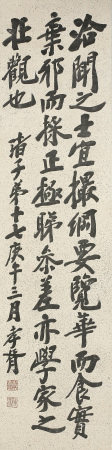 洽聞之士宜撮綱要覽華而食實
棄邪而採正極睇參差亦學家之
壯觀也 諸子弟十七庚午三月孝胥